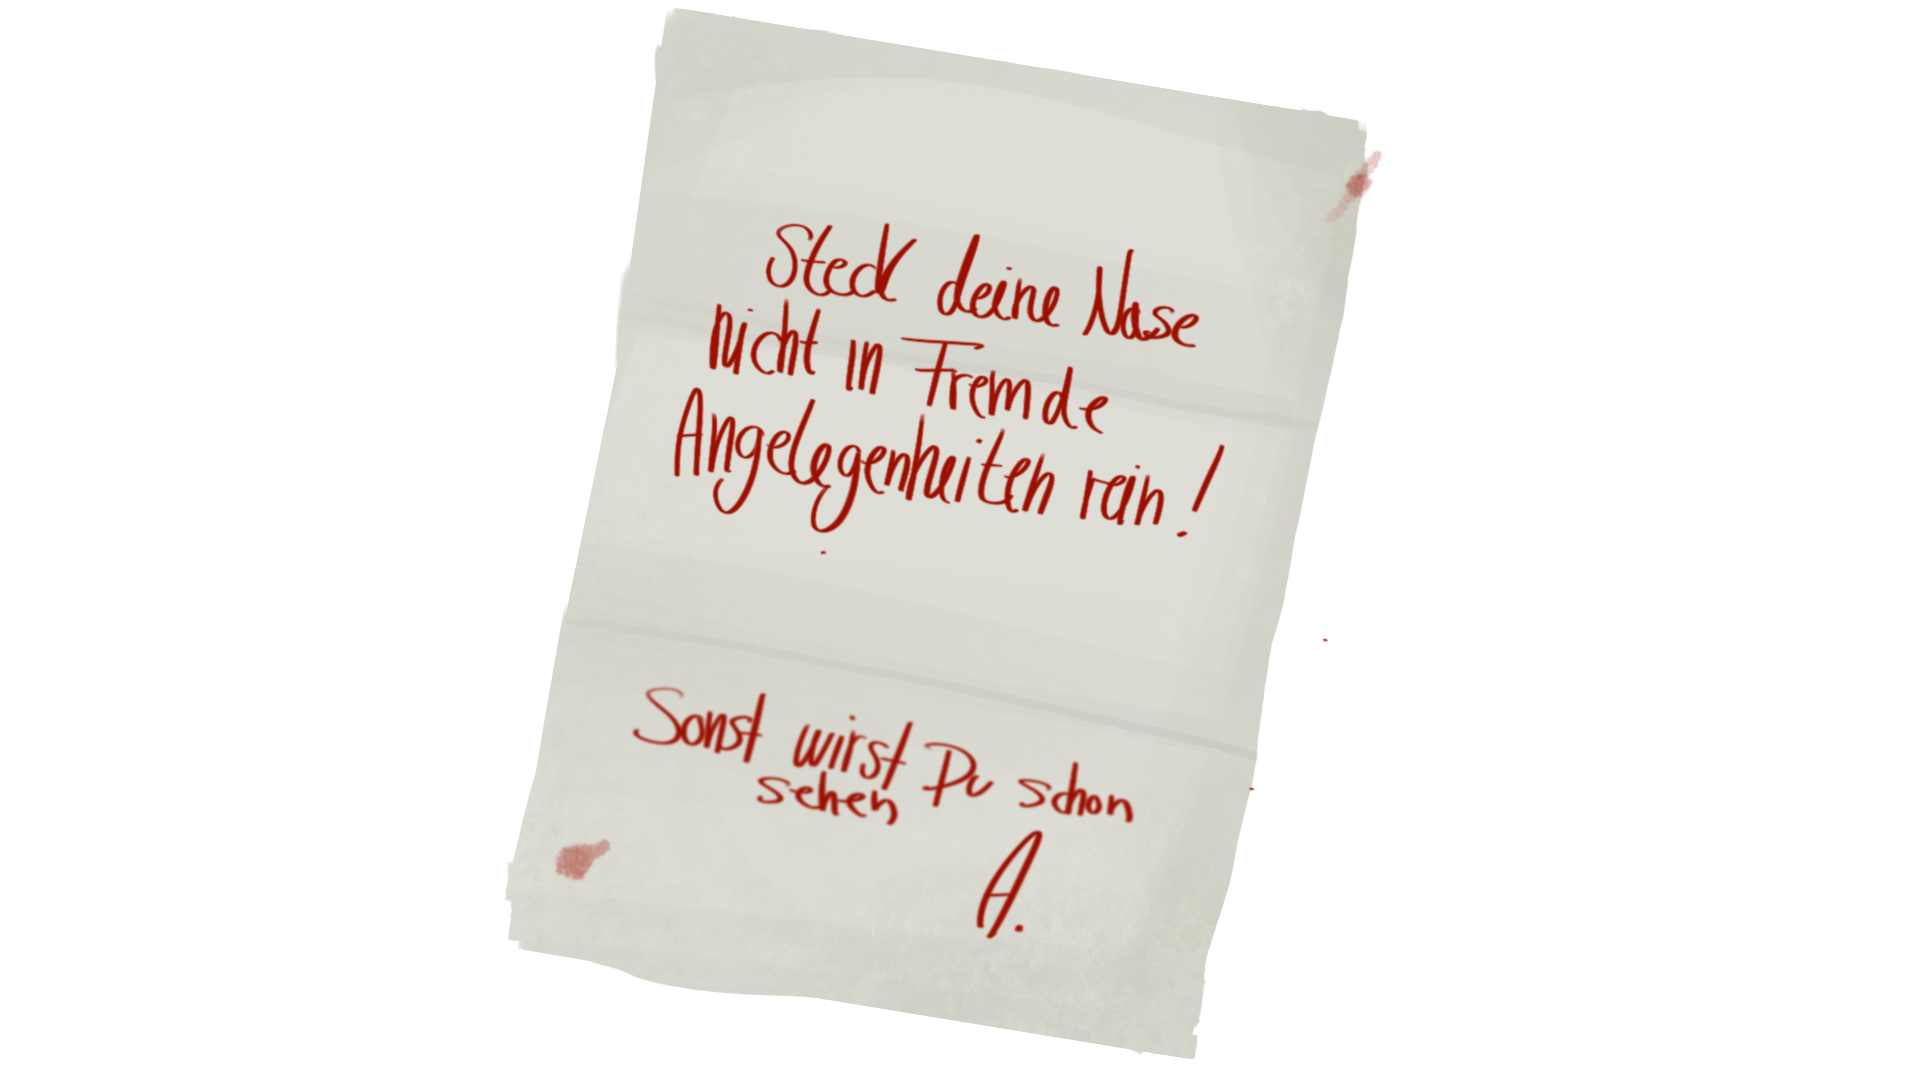 Steck deine Nase
nicht in Fremde
Angelegenheiten rein!
Sonst wirst Du schon
sehen
A.